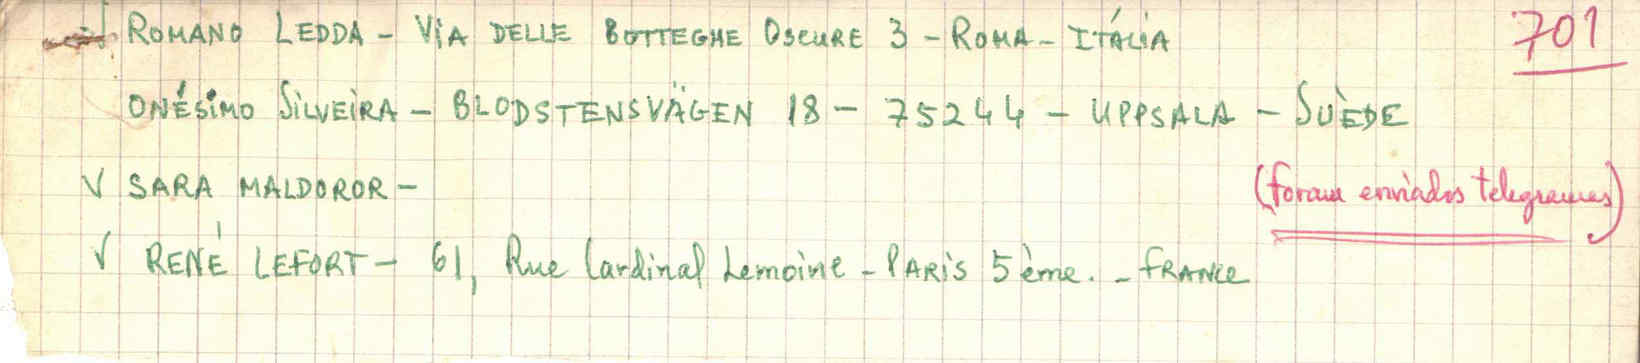 √ ROMANO LEDDA - VIA DELLE BOTTEGHE OSCURE 3 - ROMA - ITÁLIA
701
ONÉSIMO SILVEIRA - BLODSTENSVÄGEN 18 - 75244 - UPPSALA - SUÈDE
√ SARA MALDOROR -
(foram enviados telegramas)
√ RENÉ LEFORT - 61, Rue Cardinal Lemoine - PARIS 5ème. - FRANCE